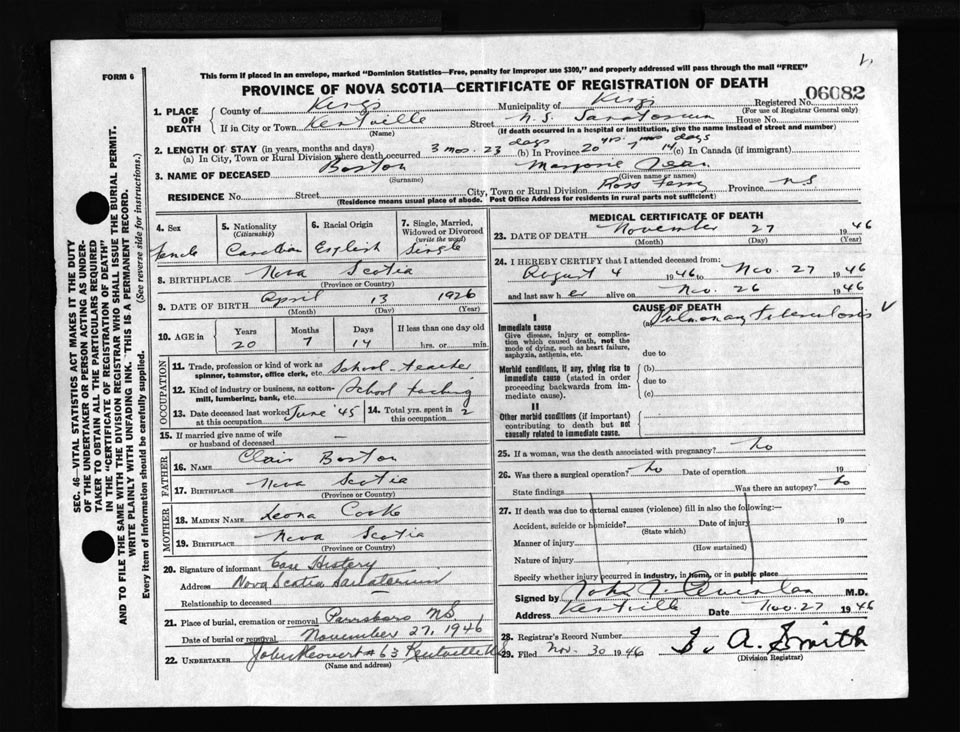 FORM 6
This form if placed in an envelope, marked "Dominion Statistics—Free, penalty for improper use $300," and properly addressed will pass through the mail "FREE"
PROVINCE OF NOVA SCOTIA—CERTIFICATE OF REGISTRATION OF DEATH
06082
1. PLACE OF DEATH
County of Kings Municipality of Kings Registered No.
(For use of Registrar General only)
If in City or Town Kentville Street N.S. Sanatorium House No.
(Name) (If death occurred in a hospital or institution, give the name instead of street and number)
2. LENGTH OF STAY (in years, months and days)
(a) In City, Town or Rural Division where death occurred 3 mos. 23 days (b) In Province 20 yrs. 7 mos 14 days (c) In Canada (if immigrant)
3. NAME OF DECEASED Boston Marjorie Jean
(Surname) (Given name or names)
RESIDENCE No. Street City, Town or Rural Division Ross Province NS
(Residence means usual place of abode. Post Office Address for residents in rural parts not sufficient)
4. Sex
Female
5. Nationality (Citizenship)
Canadian
6. Racial Origin
English
7. Single, Married, Widowed or Divorced (write the word)
Single
8. BIRTHPLACE Nova Scotia
(Province or Country)
9. DATE OF BIRTH April 13 1926
(Month) (Day) (Year)
10. AGE in Years Months Days If less than one day old
20 7 14 hrs. or min.
OCCUPATION
11. Trade, profession or kind of work as spinner, teamster, office clerk, etc. School teacher
12. Kind of industry or business, as cotton-mill, lumbering, bank, etc. School teaching
13. Date deceased last worked at this occupation June '45 14. Total yrs. spent in this occupation 2
15. If married give name of wife or husband of deceased —
FATHER
16. NAME Clair Boston
17. BIRTHPLACE Nova Scotia
(Province or Country)
MOTHER
18. MAIDEN NAME Leona Cooke
19. BIRTHPLACE Nova Scotia
(Province or Country)
20. Signature of informant Case History
Address Nova Scotia Sanatorium
Relationship to deceased
21. Place of burial, cremation or removal Parrsboro N.S.
Date of burial or removal November 27, 1946
22. UNDERTAKER #63 Kentville
(Name and address)
MEDICAL CERTIFICATE OF DEATH
23. DATE OF DEATH November 27 1946
(Month) (Day) (Year)
24. I HEREBY CERTIFY that I attended deceased from:
August 4 1946 to Nov. 27 1946
and last saw her alive on Nov. 26 1946
CAUSE OF DEATH
I
Immediate cause
Give disease, injury or complication which caused death, not the mode of dying, such as heart failure, asphyxia, asthenia, etc.
(a) Pulmonary Tuberculosis
due to
Morbid conditions, if any, giving rise to immediate cause (stated in order proceeding backwards from immediate cause).
(b)
due to
(c)
II
Other morbid conditions (if important) contributing to death but not causally related to immediate cause.
25. If a woman, was the death associated with pregnancy? No
26. Was there a surgical operation? No Date of operation 19
State findings Was there an autopsy? No
27. If death was due to external causes (violence) fill in also the following:—
Accident, suicide or homicide? Date of injury 19
(State which)
Manner of injury
(How sustained)
Nature of injury
Specify whether injury occurred in industry, in home, or in public place
Signed by John J. Quinlan M.D.
Address Kentville Date Nov. 27 1946
28. Registrar's Record Number
29. Filed Nov. 30 1946 A. Smith
(Division Registrar)
SEC. 46—VITAL STATISTICS ACT MAKES IT THE DUTY
OF THE UNDERTAKER OR PERSON ACTING AS UNDER-
TAKER TO OBTAIN ALL THE PARTICULARS REQUIRED
IN THE "CERTIFICATE OF REGISTRATION OF DEATH"
AND TO FILE THE SAME WITH THE DIVISION REGISTRAR WHO SHALL ISSUE THE BURIAL PERMIT.
WRITE PLAINLY WITH UNFADING INK. THIS IS A PERMANENT RECORD.
Every item of information should be carefully supplied. (See reverse side for instructions.)